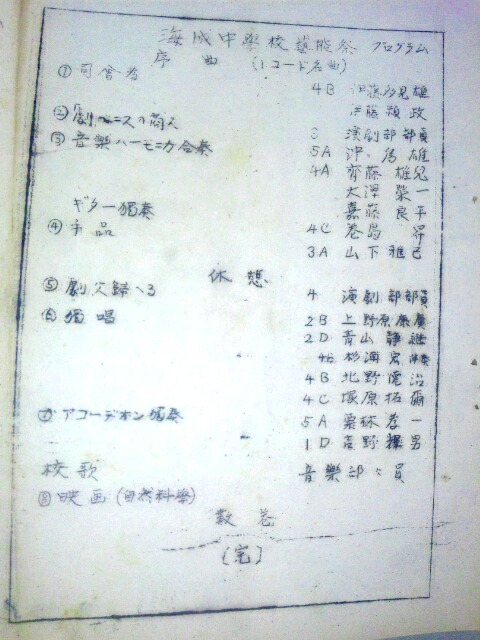 海成中學校藝能祭 プログラム
序曲 (レコード名曲)
① 司會者 4B 伊藤 雄
伊藤 政
② 劇 ベニスの商人 演劇部部員
③ 音樂ハーモニカ合奏 5A 沖 雄
4A 齊藤 雄兒
大澤 榮一
嘉藤 良平
ギター獨奏 4C 巻島 昇
④ 手品 3A 山下 雅己
休憩
⑤ 劇 父歸へる 4 演劇部部員
⑥ 獨唱 2B 上野原 康廣
2D 青山 静
4B 杉浦 宏
4B 北野 治
4C 塚原 拓爾
⑦ アコーデオン獨奏 5A 栗林 孝一
1D 高野 輝男
校歌 音樂部々員
⑧ 映画 (自然科學)
散卷
(完)